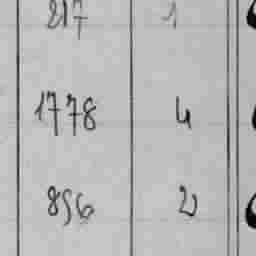 217 1
1778 4
856 2